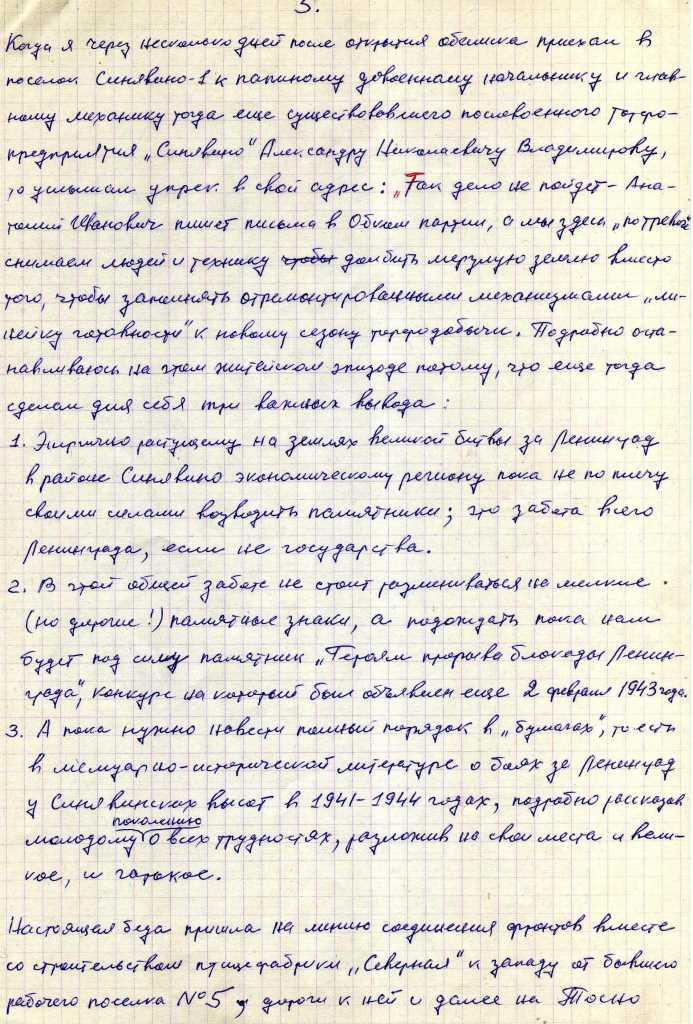 3.
Когда я через несколько дней после открытия обелиска приехал в
поселок Синявино-1 к папиному довоенному начальнику и глав-
ному механику тогда еще существовавшего послевоенного Торфо-
предприятия „Синявино" Александру Николаевичу Владимирову,
то услышал упрек в свой адрес: „Так дело не пойдет - Ана-
толий Иванович пишет письма в Обком партии, а мы здесь „по тревоге"
снимаем людей и технику чтобы долбить мерзлую землю вместо
того, чтобы заполнять отремонтированными механизмами „ли-
нейку готовности" к новому сезону торфодобычи. Подробно оста-
навливаюсь на этом житейском эпизоде потому, что еще тогда
сделал для себя три важных вывода:
1. Энергично растущему на землях великой битвы за Ленинград
в районе Синявино экономическому региону пока не по плечу
своими силами возводить памятники; это забота всего
Ленинграда, если не государства.
2. В этой общей заботе не стоит размениваться на мелкие
(но дорогие!) памятные знаки, а подождать пока нам
будет под силу памятник „Героям прорыва блокады Ленин-
града", конкурс на который был объявлен еще 2 февраля 1943 года.
3. А пока нужно навести полный порядок в „бумагах", то есть
в мемуарно-исторической литературе о боях за Ленинград
у Синявинских высот в 1941-1944 годах, подробно рассказав
молодому поколению о всех трудностях, разложив на свои места и вели-
кое, и горькое.
Настоящая беда пришла на линию соединения фронтов вместе
со строительством птицефабрики „Северная" к западу от бывшего
рабочего поселка №5, дороги к ней и далее на Тосно